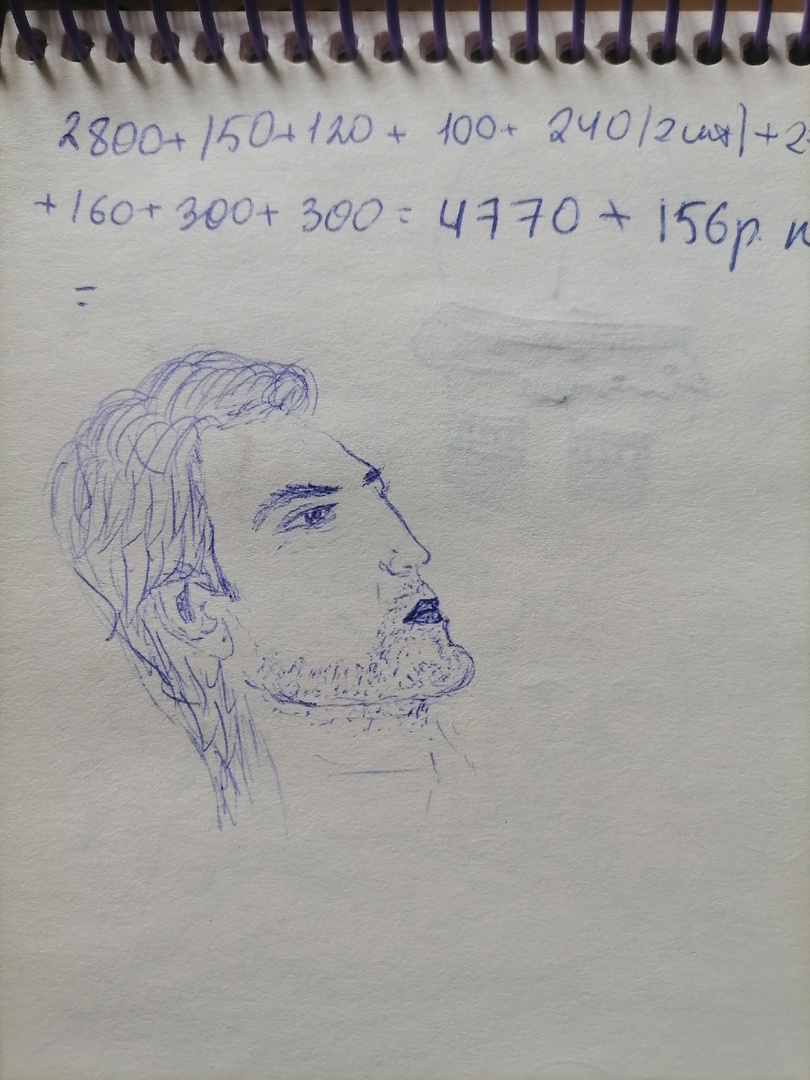 2800+150+120 + 100+ 240(2шт)+2
+160+300+300 = 4770 + 156р
=